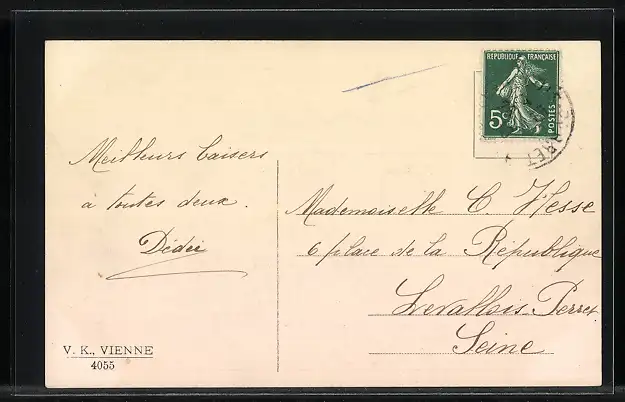 REPUBLIQUE FRANÇAISE
5c
POSTES
Meilleurs baisers
à toutes deux.
Dédée
Mademoiselle C. Hesse
6 place de la République
Levallois-Perret
Seine
V. K., VIENNE
4055